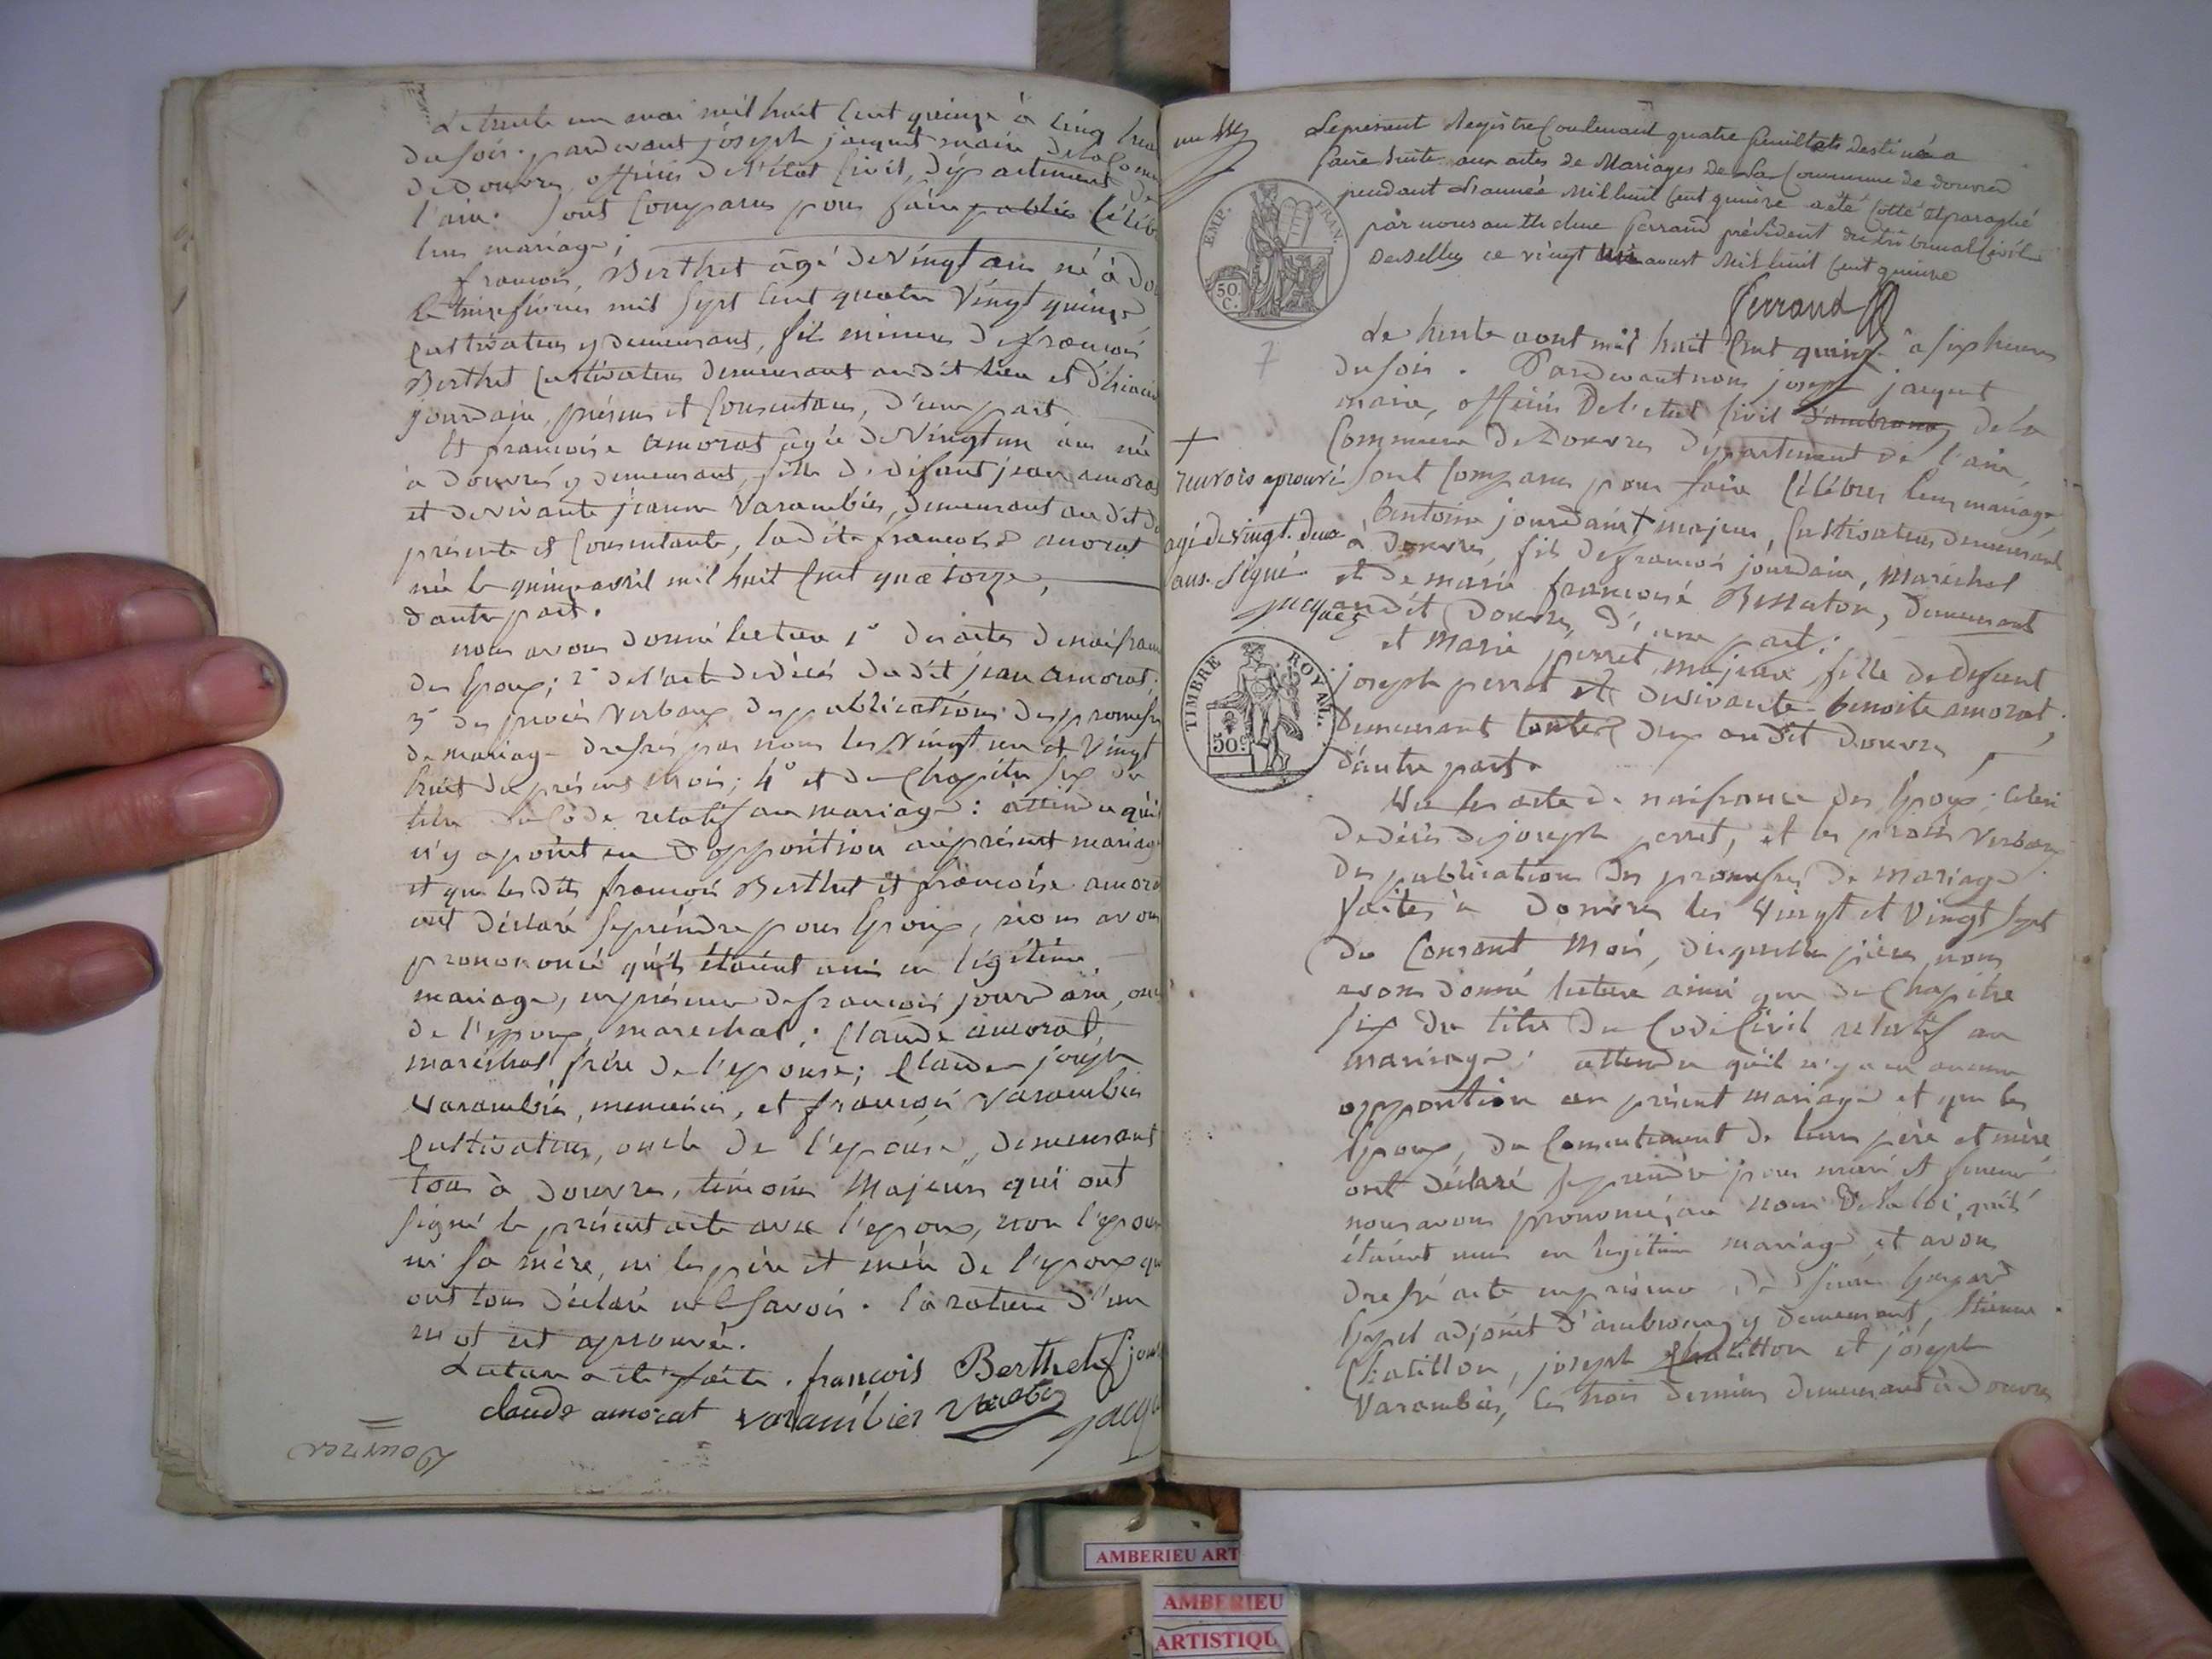 Le trente un mai mil huit cent quinze à cinq heu
du soir. pardevant joseph jacquet maire de la Comm
de Douvres, officier de l'état civil, département de
l'ain. Sont comparus pour faire publier célèb
leur mariage;
francois, Berthet âgé de vingt ans né à Dou
le treize février mil sept cent quatre vingt quinze
cultivateur y demeurant, fils mineur de francois
Berthet cultivateur demeurant audit lieu et d'
jourdain, présens et consentans, d'une part
Et francoise amorat âgée de vingt un ans née
à douvres y demeurant, fille de défunt jean amorat
et de vivante jeanne Varambier, demeurant audit d
présente et consentante, ladite francoise amorat
née le quinze avril mil huit cent quatorze,
d'autre part.
nous avons donné lecture 1° des actes de naissan
des époux; 2° de l'acte de décès du dit jean amorat;
3° des procès verbaux des publications des promesses
de mariage dressés par nous les vingt un et vingt
huit du présent mois; 4° et du chapitre six du
titre du code relatif au mariage: attendu qu'il
n'y a point eu d'opposition au présent mariage
et que lesdits francois Berthet et francoise amorat
ont déclaré se prendre pour époux, nous avons
prononcé qu'ils étaient unis en légitime
mariage, en présence de francois jourdain, oncle
de l'époux, marechal; Claude amorat,
maréchal frère de l'épouse; Claude joseph
Varambier, menuisier, et francois Varambier
cultivateur, oncle de l'épouse, demeurant
tous à douvres, témoins majeurs qui ont
signé le présent acte avec l'époux, non l'épouse
ni sa mère, ni les père et mère de l'époux qui
ont tous déclaré ne savoir. la rature d'un
mot est aprouvée.
Lecture a été faite. francois Berthet f jour
claude amorat varambier jacq
Douvres
Le présent Registre contenant quatre feuillets destiné a
faire suite aux actes de Mariages de la Commune de douvres
pendant L'année mil huit cent quinze a été cotté et paraphé
par nous anthelme ferrand président du tribunal civil
de Belley ce vingt aoust mil huit cent quinze
ferrand
EMP. FRAN.
50 C.
7
Le trente aout mil huit cent quinze à six heures
du soir. Pardevant nous joseph jacquet
maire, officier de l'état civil d'ambronay de la
Commune de Douvres département de l'ain,
sont comparus pour faire célébrer leur mariage,
antoine jourdain + majeur, cultivateur demeurant
à douvres, fils de francois jourdain, maréchal
et de marie francoise Bellaton, demeurant
audit Douvres, d'une part;
+
renvois aprouvé
agé de vingt. deux
ans. Signé
jacquet
et Marie perret, majeure, fille de défunt
joseph perret et de vivante benoite amorat,
demeurant toutes deux audit Douvres,
d'autre part.
TIMBRE ROYAL.
50 c
Vu les acte de naissance des époux; celui
de décès de joseph perret, et les procès verbaux
des publications des promesses de mariage
faites à douvres les vingt et vingt sept
du courant mois, desquelles pièces nous
avons donné lecture ainsi que du chapitre
six du titre du code civil relatif au
mariage; attendu qu'il n'y a eu aucune
opposition au présent mariage et que les
époux, du consentement de leurs père et mère
ont déclaré se prendre pour mari et femme
nous avons prononcé, au nom de la loi, qu'ils
étaient unis en légitime mariage et avons
dressé acte en présence de
adjoint d'ambronay y demeurant, Etienne
Chatillon, joseph Chatillon et joseph
Varambier, les trois derniers demeurant à Douvres
AMBERIEU ART
AMBERIEU
ARTISTIQU